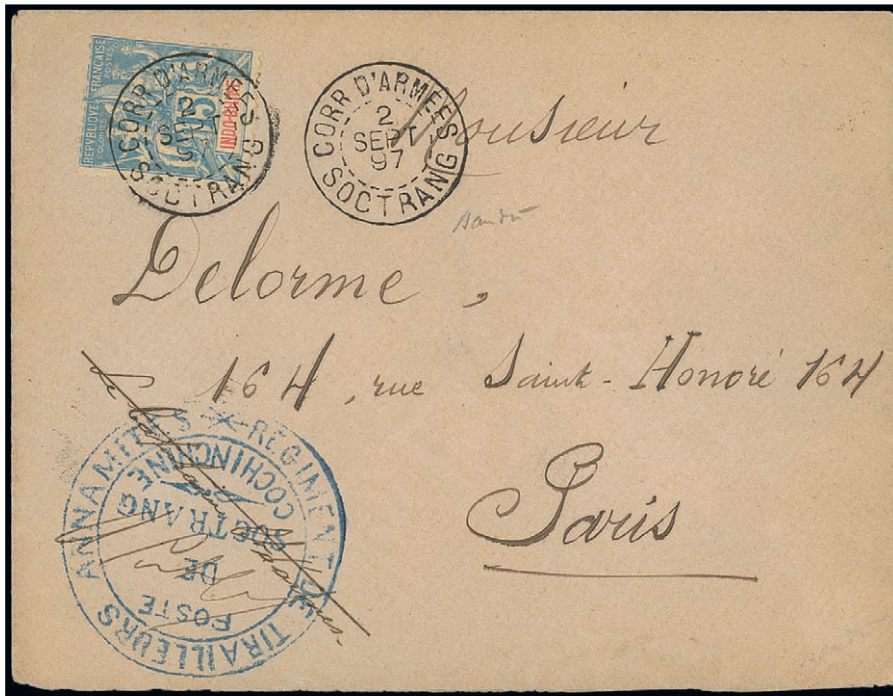 RÉPUBLIQUE FRANÇAISE
POSTES
INDO-CHINE
15
CORR. D'ARMÉES
2
SEPT
97
SOCTRANG
CORR. D'ARMÉES
2
SEPT
97
SOCTRANG
Monsieur
Delorme,
164, rue Saint-Honoré 164
Paris
RÉGIMENT DE TIRAILLEURS ANNAMITES
COCHINCHINE
POSTE
DE
SOCTRANG